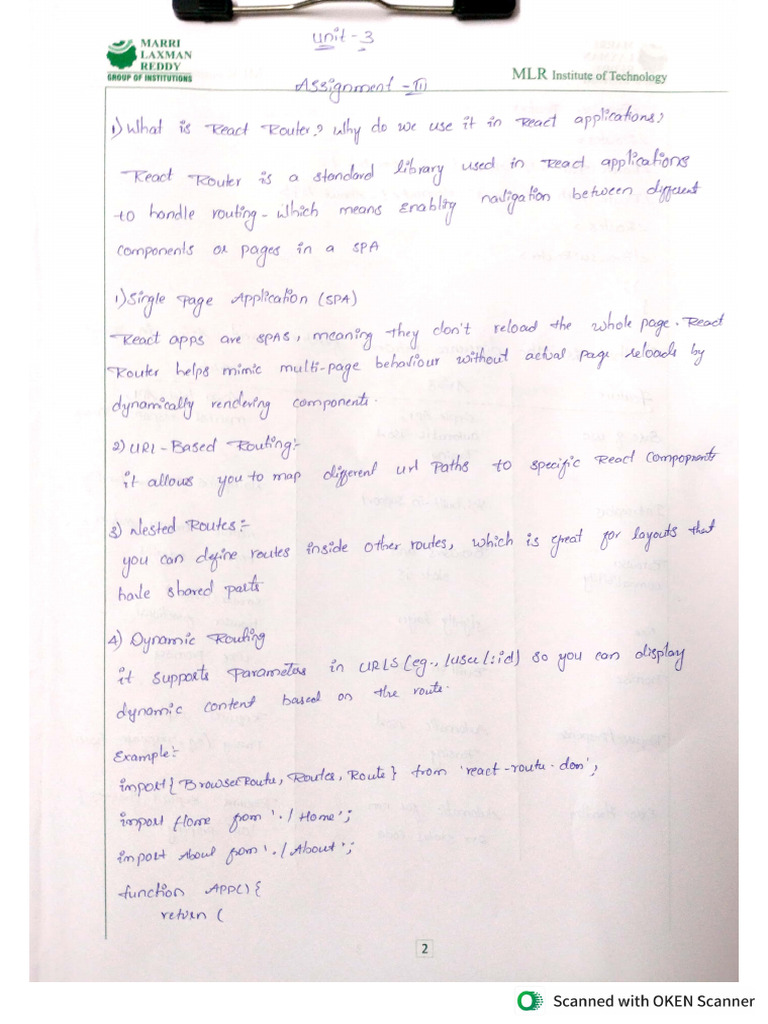 Unit - 3
MARRI
LAXMAN
REDDY
GROUP OF INSTITUTIONS
MLR Institute of Technology
Assignment - III
1) What is React Router? Why do we use it in React applications?
React Router is a standard library used in React applications
to handle routing - which means enabling navigation between different
components or pages in a SPA
1) Single Page Application (SPA)
React apps are SPAS, meaning they don't reload the whole page. React
Router helps mimic multi-page behaviour without actual page reloads by
dynamically rendering components.
2) URL - Based Routing:-
it allows you to map different url Paths to specific React Components
3) Nested Routes:-
you can define routes inside other routes, which is great for layouts that
have shared parts
4) Dynamic Routing
it supports Parameters in URLS (eg., /user/:id) so you can display
dynamic content based on the route.
Example:-
import { BrowserRoute, Routes, Route } from 'react-route-dom';
import Home from './Home';
import About from './About';
function APP() {
return (
2
Scanned with OKEN Scanner